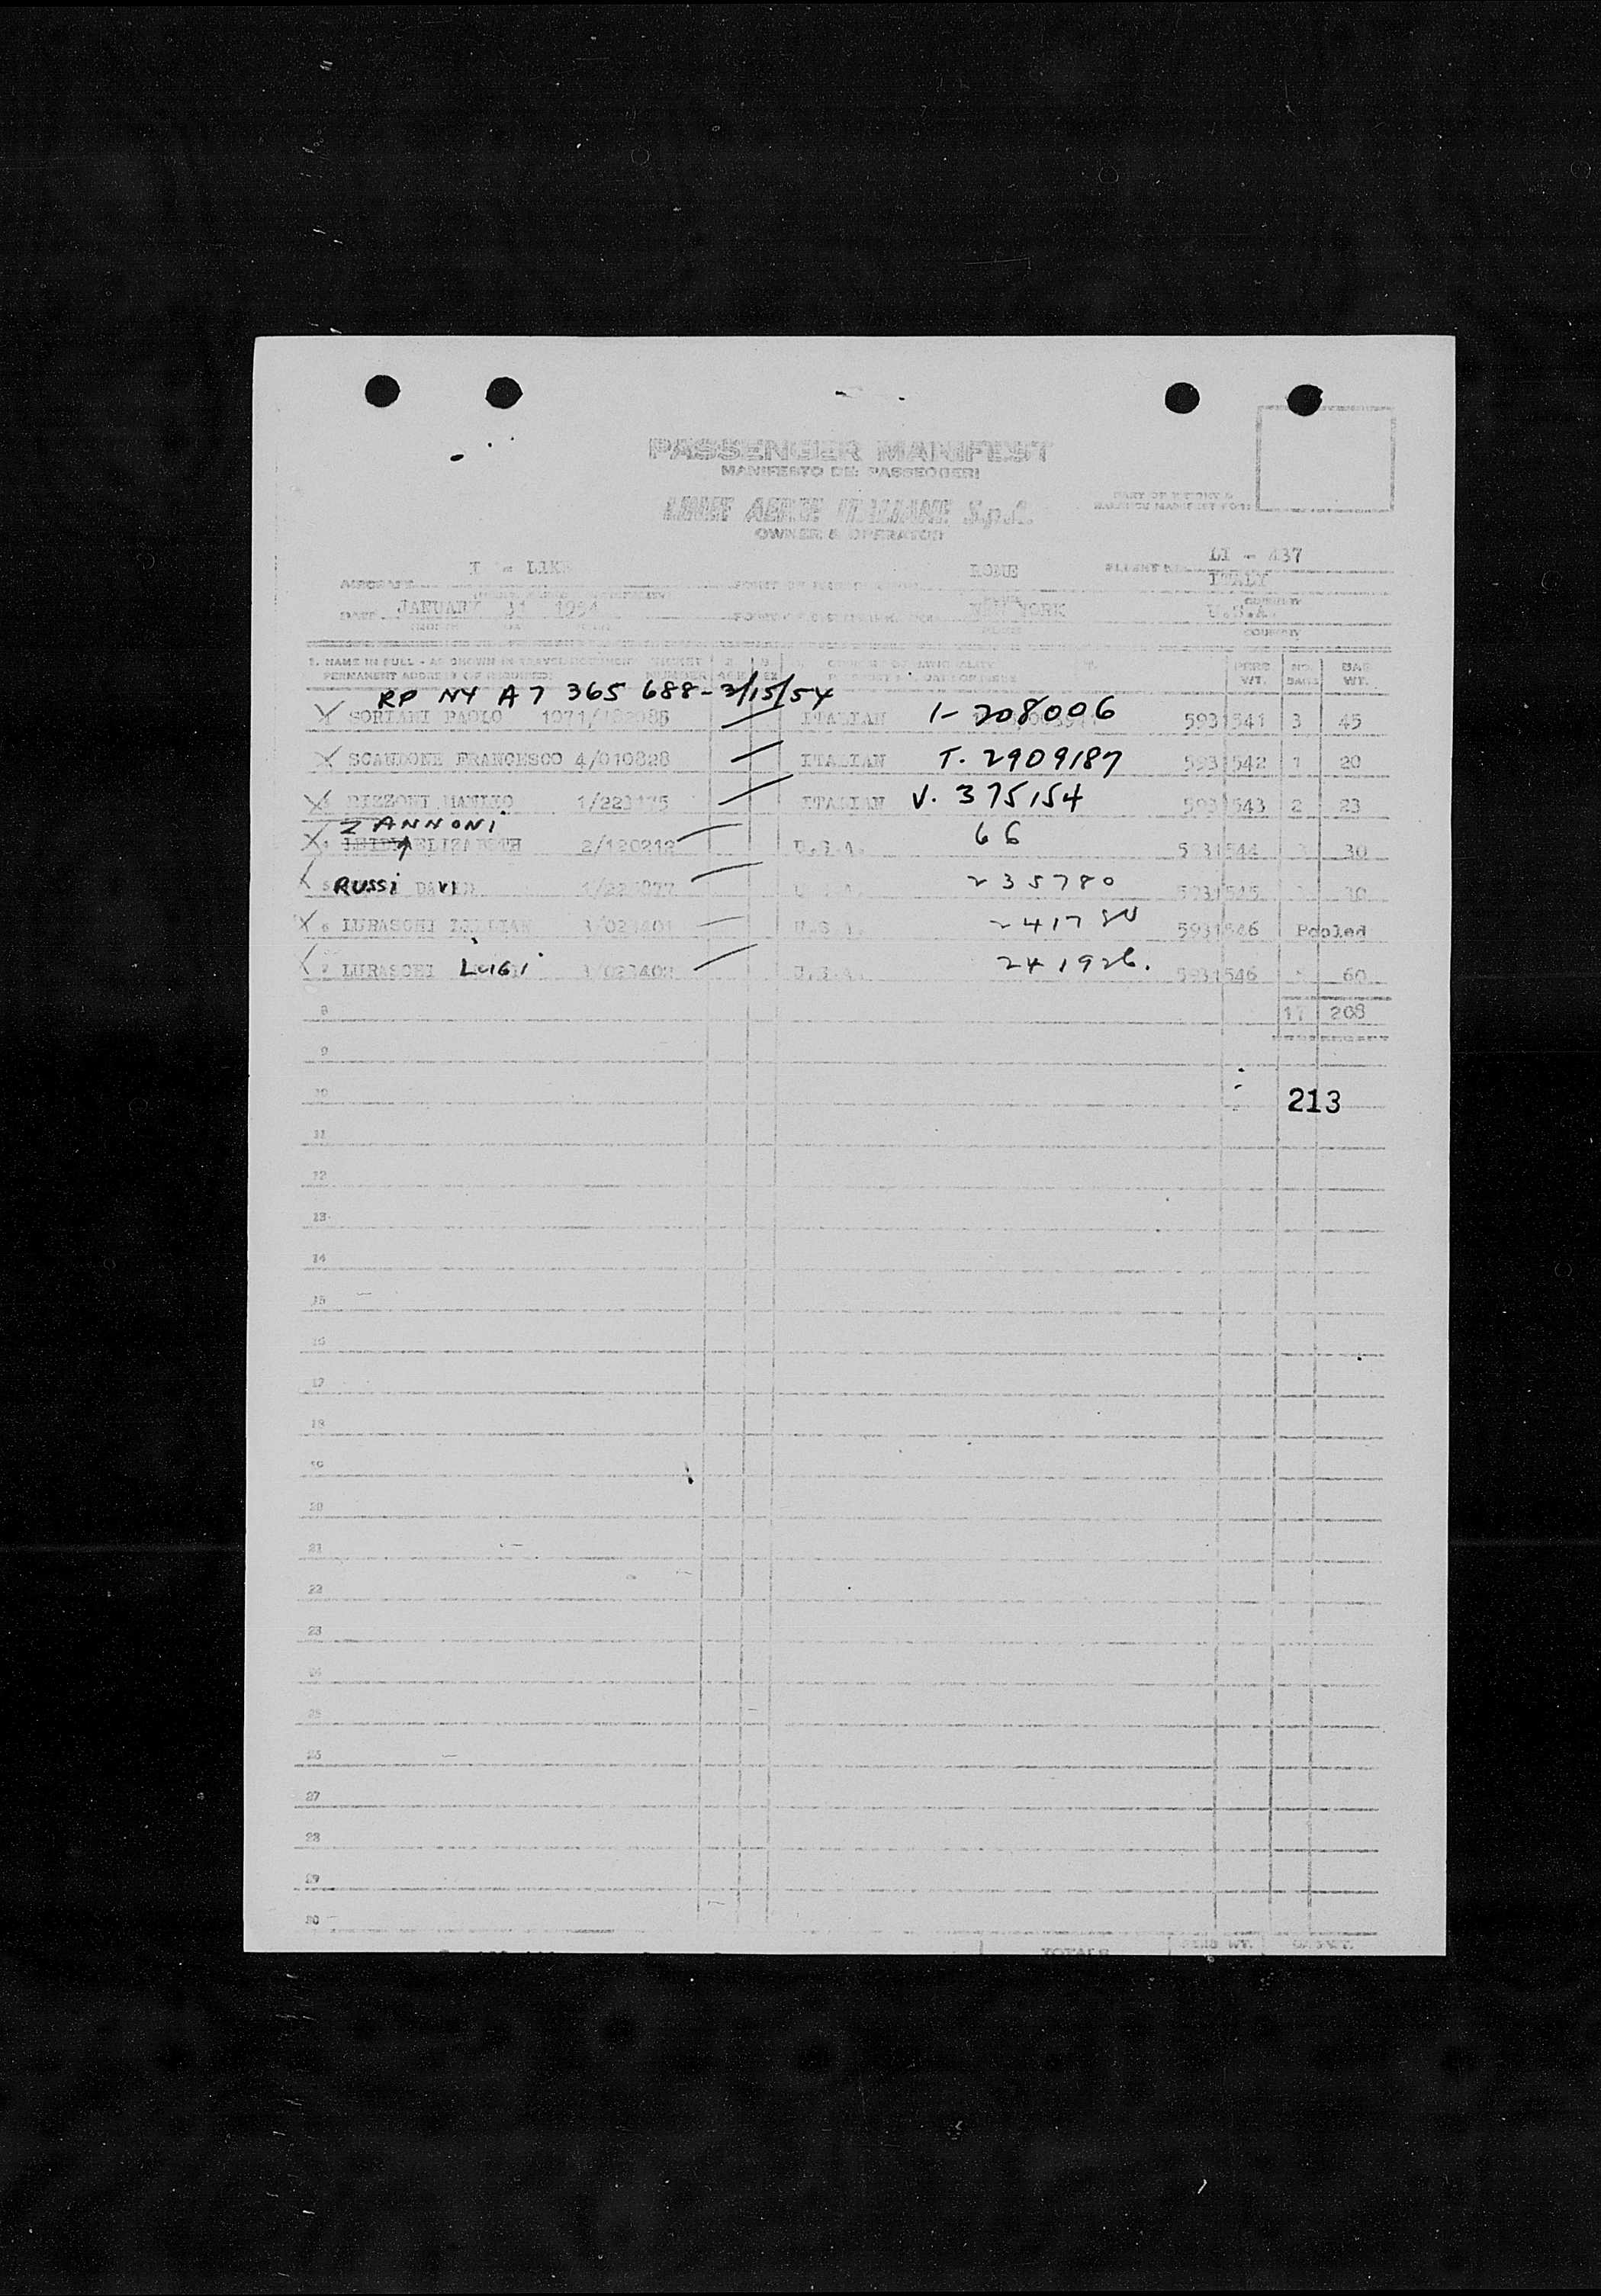 PASSENGER MANIFEST
MANIFESTO DEI PASSEGGERI
LINEE AEREE ITALIANE S.p.A.
OWNER & OPERATOR
LI - 437
AIRCRAFT I - LIKE ROME FLIGHT No. ITALY
DATE JANUARY 31 1954 NEW YORK U.S.A.
COUNTRY
1. NAME IN FULL - AS SHOWN IN TRAVEL DOCUMENT TICKET PERS NO. BAG
PERMANENT ADDRESS (IF REQUIRED) NUMBER AGE SEX WT. BAGS WT.
RP NY A7 365 688-3/15/54
1 SORIANI PAOLO 1071/ ITALIAN 1-208006 5931541 3 45
SCANDONE FRANCESCO 4/010828 ITALIAN T. 2909187 5931542 1 20
RIZZONI MANLIO 1/223175 ITALIAN V. 375154 5931543 2 23
ZANNONI
ELIZABETH 2/120212 U.S.A. 66 5931544 30
RUSSI DAVID 235780 5931545 30
6 LURASCHI LILLIAN 3/023401 U.S.A. 5931546 Pooled
7 LURASCHI LUIGI 3/023402 U.S.A. 241926. 5931546 60
8 17 208
9
10 213
11
12
13
14
15
16
17
18
19
20
21
22
23
24
25
26
27
28
29
30
TOTALS PERS WT.